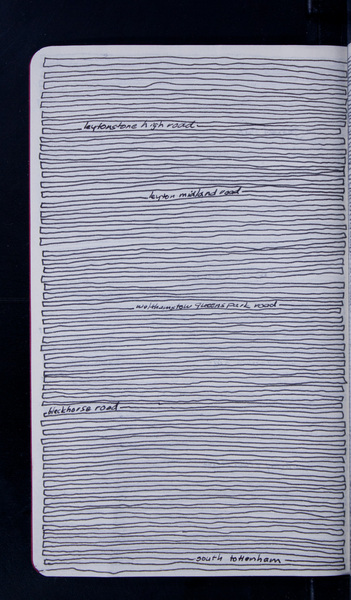 leytonstone high road
leyton midland road
walthamstow queens park road
blackhorse road
south tottenham